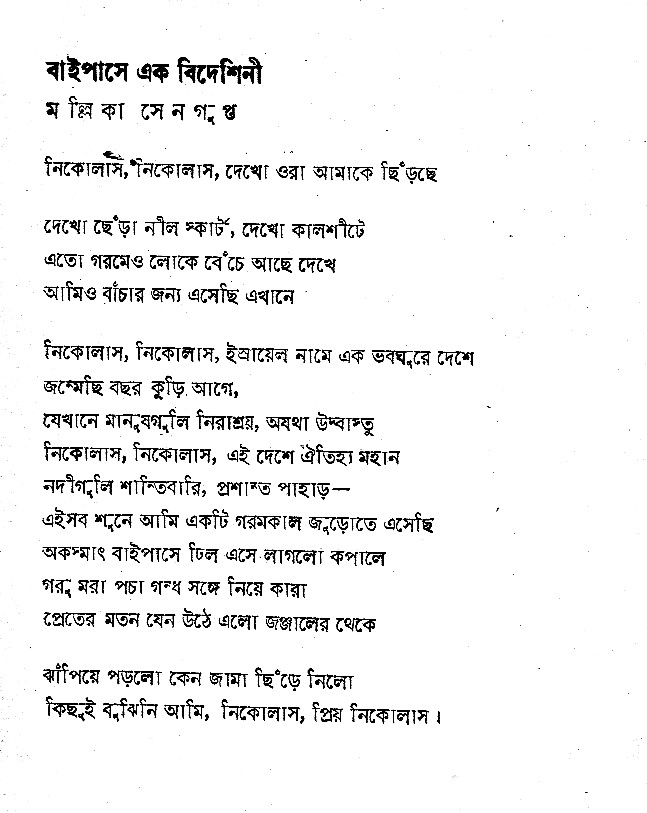 বাইপাসে এক বিদেশিনী
ম ল্লি কা সে ন গু প্ত
নিকোলাস, নিকোলাস, দেখো ওরা আমাকে ছিঁড়ছে
দেখো ছেঁড়া নীল স্কার্ট, দেখো কালশীটে
এতো গরমেও লোকে বেঁচে আছে দেখে
আমিও বাঁচার জন্য এসেছি এখানে
নিকোলাস, নিকোলাস, ইস্রায়েল নামে এক ভবঘুরে দেশে
জন্মেছি বছর কুড়ি আগে,
যেখানে মানুষগুলি নিরাশ্রয়, অযথা উদ্বাস্তু
নিকোলাস, নিকোলাস, এই দেশে ঐতিহ্য মহান
নদীগুলি শান্তিবারি, প্রশান্ত পাহাড়—
এইসব শুনে আমি একটি গরমকাল জুড়োতে এসেছি
অকস্মাৎ বাইপাসে ঢিল এসে লাগলো কপালে
গরু মরা পচা গন্ধ সঙ্গে নিয়ে কারা
প্রেতের মতন যেন উঠে এলো জঞ্জালের থেকে
ঝাঁপিয়ে পড়লো কেন জামা ছিঁড়ে নিলো
কিছুই বুঝিনি আমি, নিকোলাস, প্রিয় নিকোলাস।